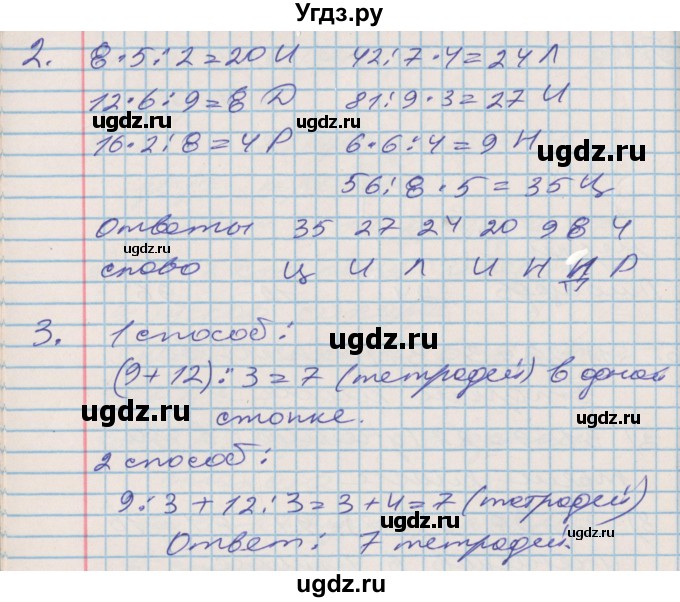 Угдз.ру
2. 8·5:2=20 И 42:7·4=24 Л
12·6:9=8 Д 81:9·3=27 И
ugdz.ru ugdz.ru
16·2:8=4 Р 6·6:4=9 Н ugdz.ru
56:8·5=35 Ц
Ответы 35 27 24 20 9 8 4
ugdz.ru ugdz.ru
слово Ц И Л И Н Д Р
3. 1 способ: ugdz.ru
(9+12):3=7 (тетрадей) в одной
ugdz.ru стопке. ugdz.ru
2 способ:
9:3+12:3=3+4=7 (тетрадей)
ugdz.ru ugdz.ru
Ответ: 7 тетрадей.
ugdz.ru